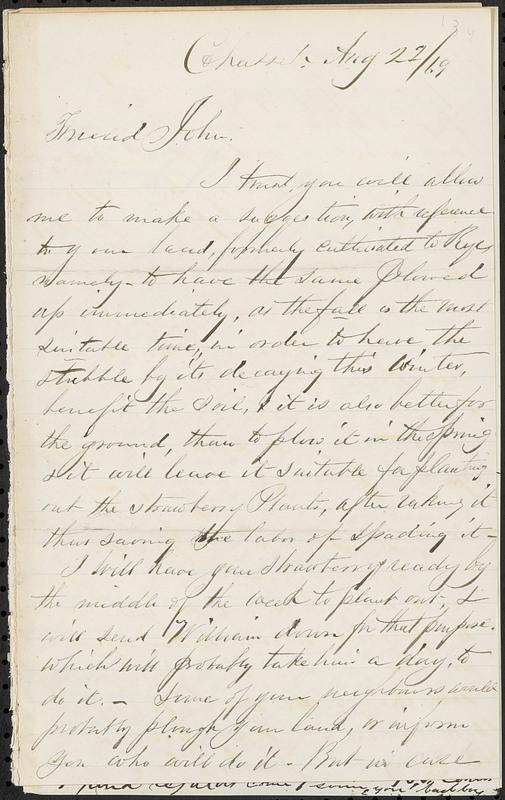 134
Aug 22/69
Friend John.
I trust you will allow
me to make a suggestion, with reference
to your land, formerly cultivated to Rye,
namely - to have the same Plowed
up immediately, as the fall is the most
suitable time, in order to have the
stubble by its decaying this Winter,
benefit the soil, & it is also better for
the ground, than to plow it in the Spring
& it will leave it suitable for planting
out the strawberry Plants, after raking it
thus saving the labor of spading it -
I will have your strawberry ready by
the middle of the week to plant out, &
will send William down for that purpose.
which will probably take him a day, to
do it. - Some of your neighbours would
probably plough your land, or inform
you who will do it - But in case